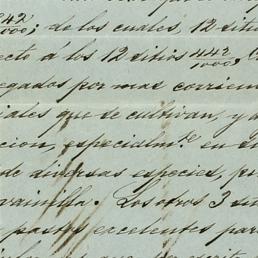 442/000; de los cuales, 12 sitio
ecto á los 12 sitios 442/1000,
egados por mas corrien
iales que se cultivan, y a
cion, especialmte en su
de diversas especies, pr
vainilla. Los otros 3 si
pastos excelentes para